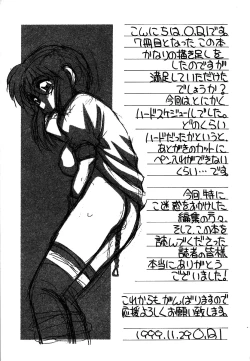 こんにちは、O.RIです。
7冊目となったこの本
かなりの描き足しを
したのですが
満足していただけた
でしょうか?
今回はとにかく
ハードスケジュールでした。
どのくらい
ハードだったかというと、
あとがきのカットに
ペン入れができない
くらい…です
今回、特に
ご迷惑をおかけした
編集の方々、
そして、この本を
読んでくださった
読者の皆様
本当にありがとう
ございました!
これからもがんばりますので
応援よろしくお願い致します。
1999.11.29 O.RI